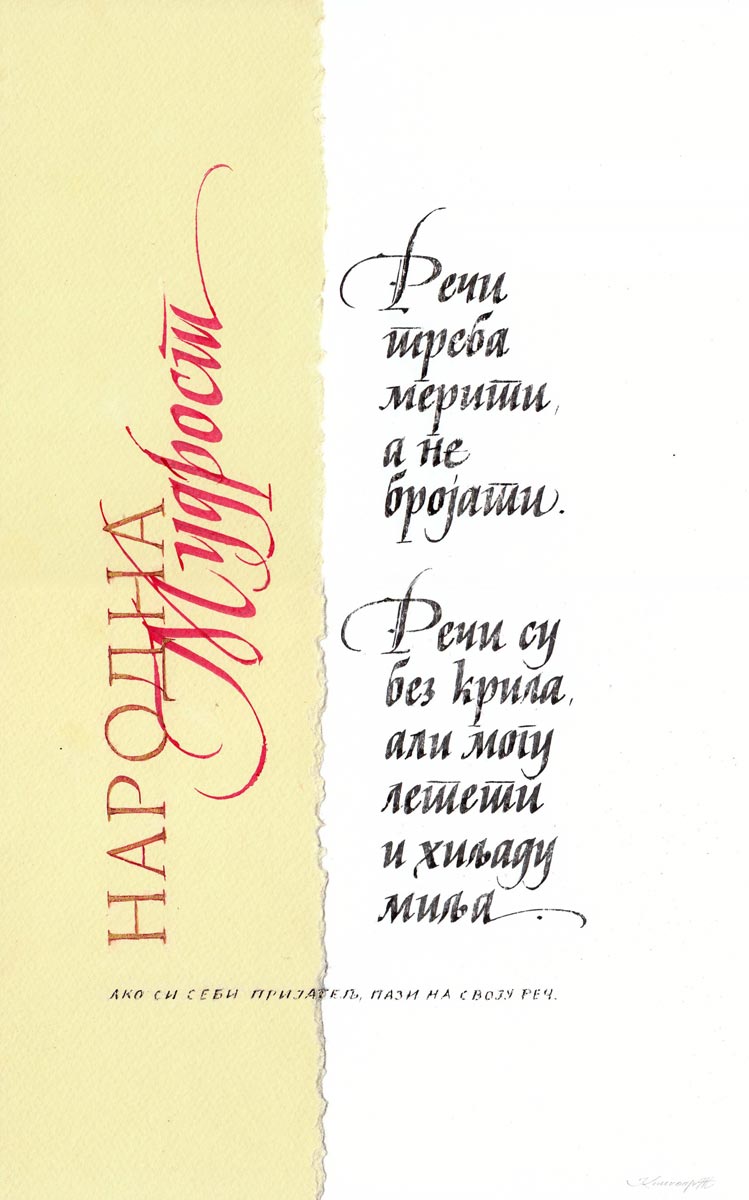 НАРОДНА
Мудрост
Речи
треба
мерити,
а не
бројати.
Речи су
без крила,
али могу
летети
и хиљаду
миља.
АКО СИ СЕБИ ПРИЈАТЕЉ, ПАЗИ НА СВОЈУ РЕЧ.